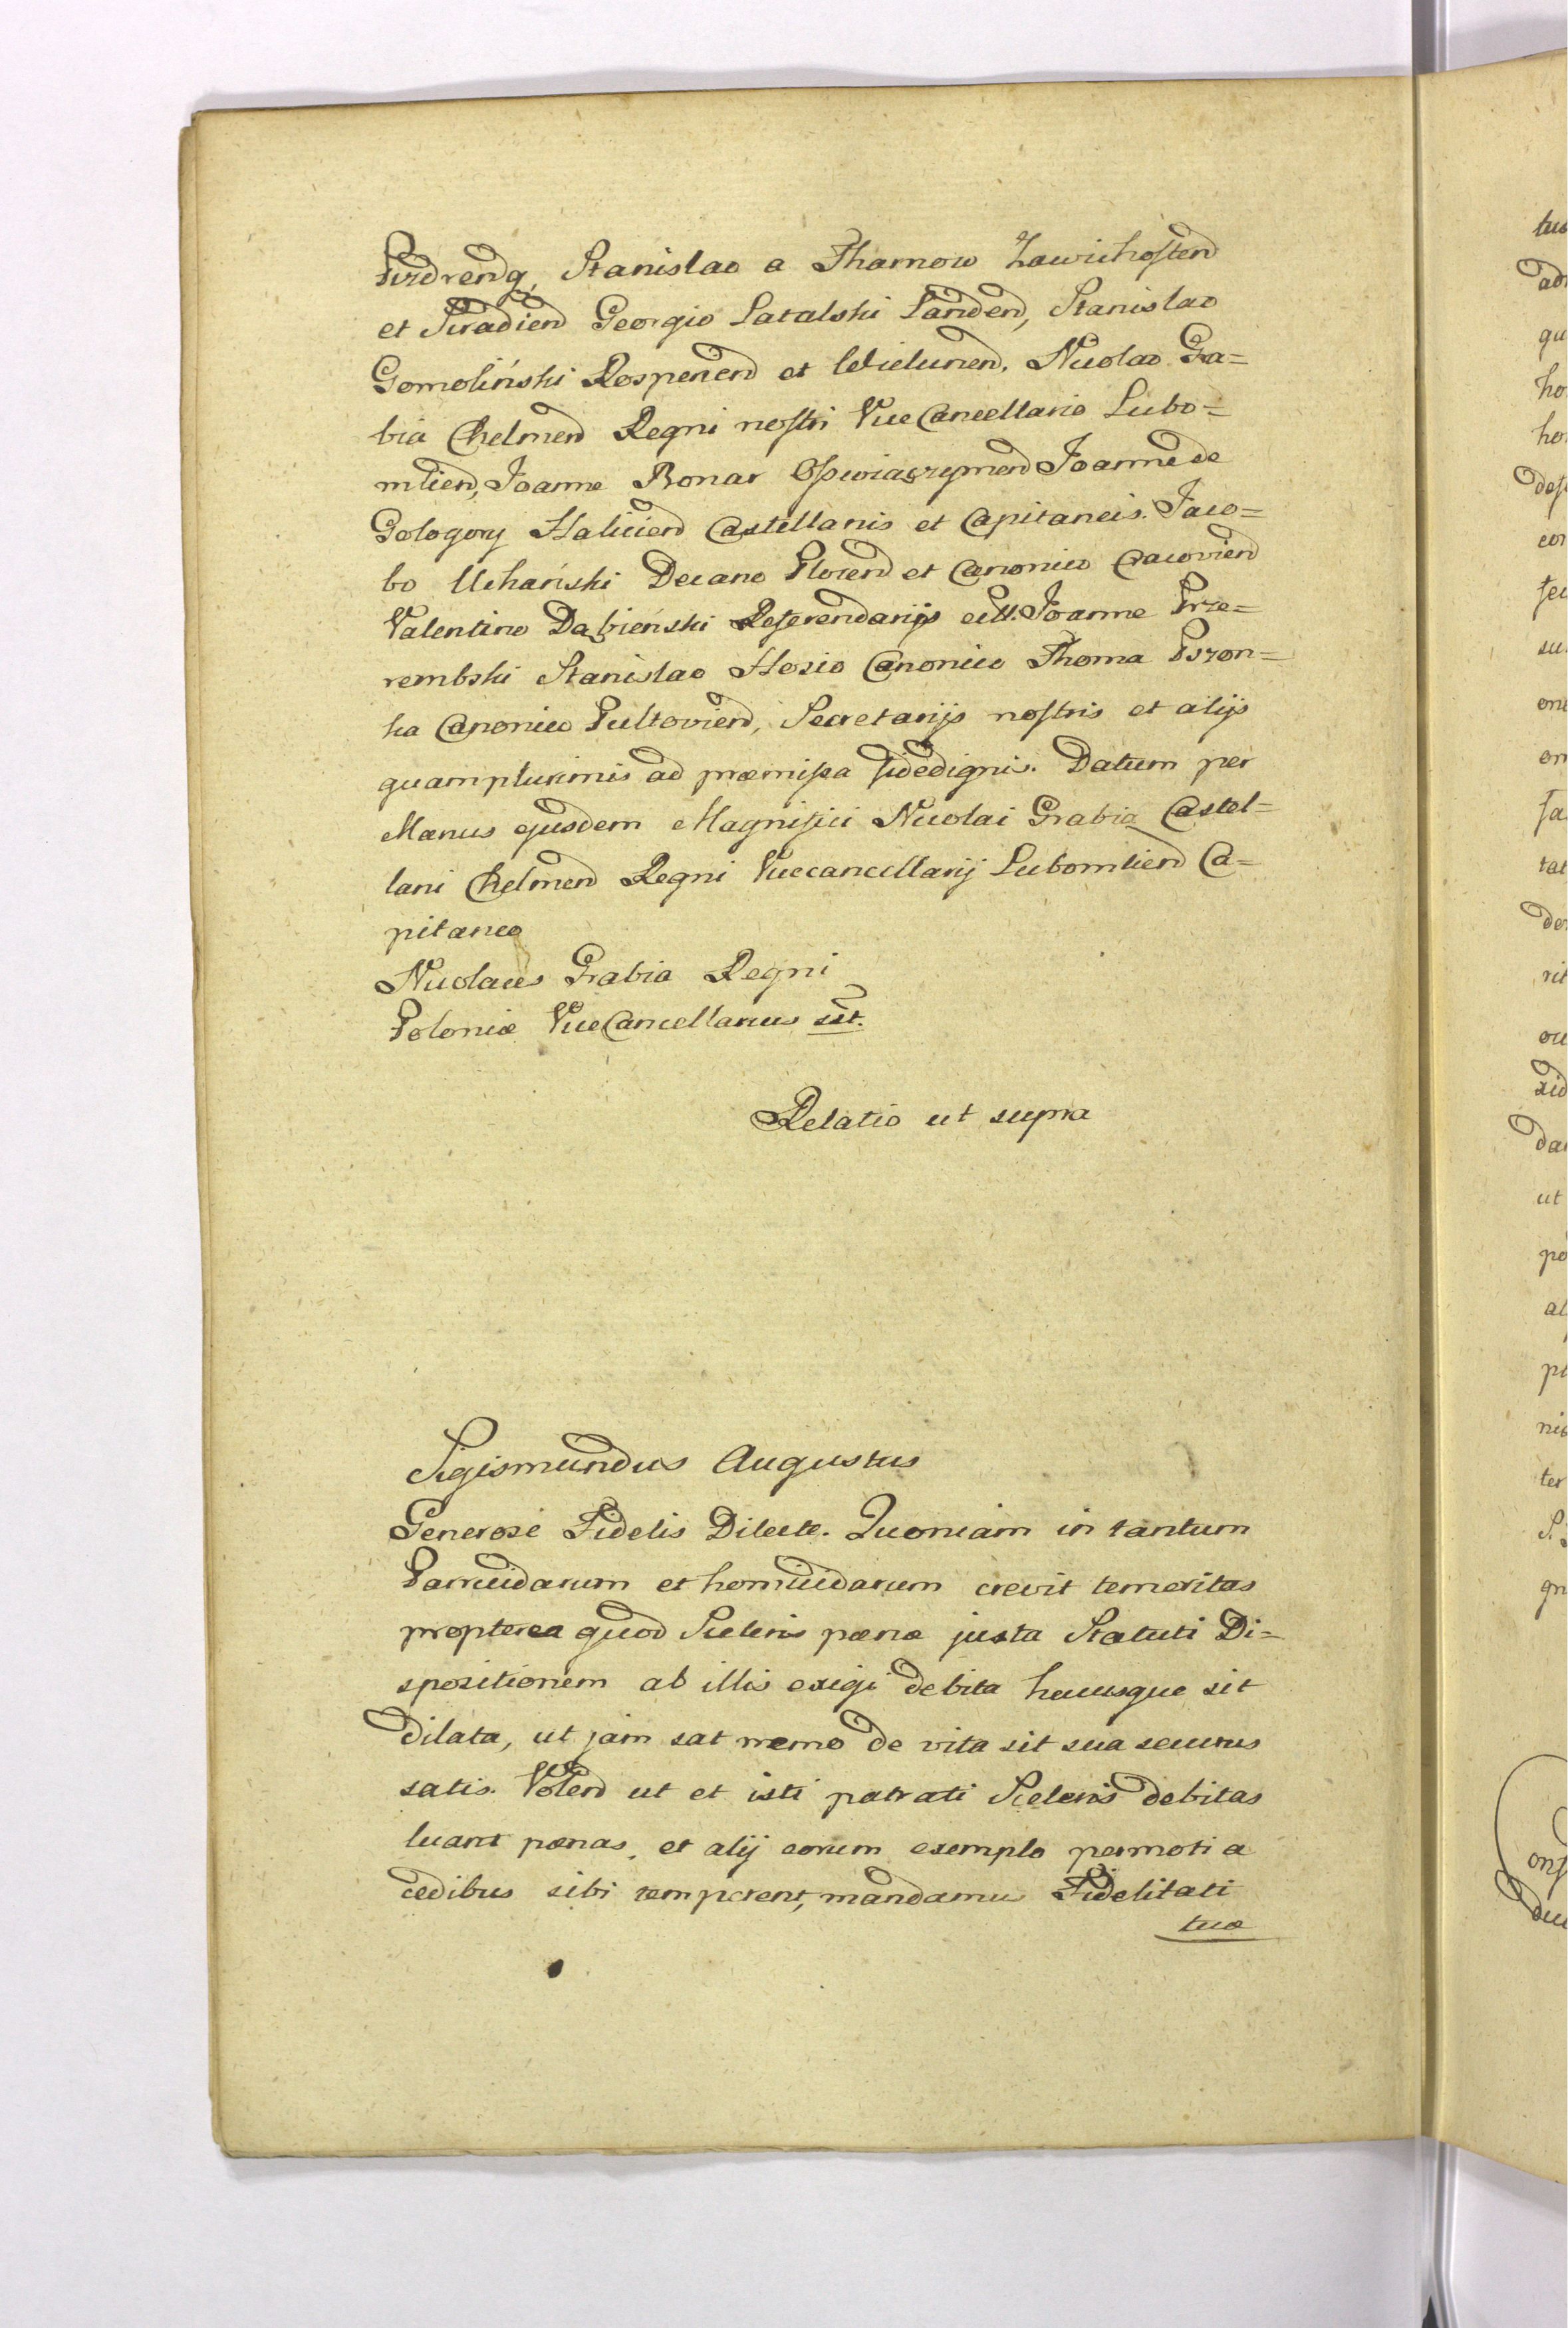 Stanislao a Tharnow Zawichosten
et Siradien Georgio Latalski Landen, Stanislao
Gomoliński Rospenen et Wielunen. Nicolao Gra=
bia Chelmen Regni nostri ViceCancellario Lubo=
mlien, Joanne Bonar Osswiaczymen Joanne de
Gologory Halicien Castellanis et Capitaneis. Jaco=
bo Uchański Decano Plocen et Canonico Cracovien
Valentino Dąbieński Referendarijs Joanne Prze=
rembski Stanislao Hosio Canonico Thoma
ka Canonico Pultovien, Secretarijs nostris et alijs
quamplurimis ad præmissa fidedignis. Datum per
Manus ejusdem Magnifici Nicolai Grabia Castel=
lani Chelmen Regni Vicecancellarij Lubomlien Ca=
pitaneo
Nicolaus Grabia Regni
Poloniæ ViceCancellarius sst.
Relatio ut supra
Sigismundus Augustus
Generose Fidelis Dilecte. Quoniam in tantum
Parricidarum et homicidarum crevit temeritas
propterea quod Sceleris pœnæ juxta Statuti Di=
spositionem ab illis exigi debita hucusque sit
dilata, ut jam sat nemo de vita sit sua securus
satis. Volen ut et isti patrati Sceleris debitas
luant pœnas, et alij eorum exemplo permoti a
cedibus sibi temperent, mandamus Fidelitati
tuæ